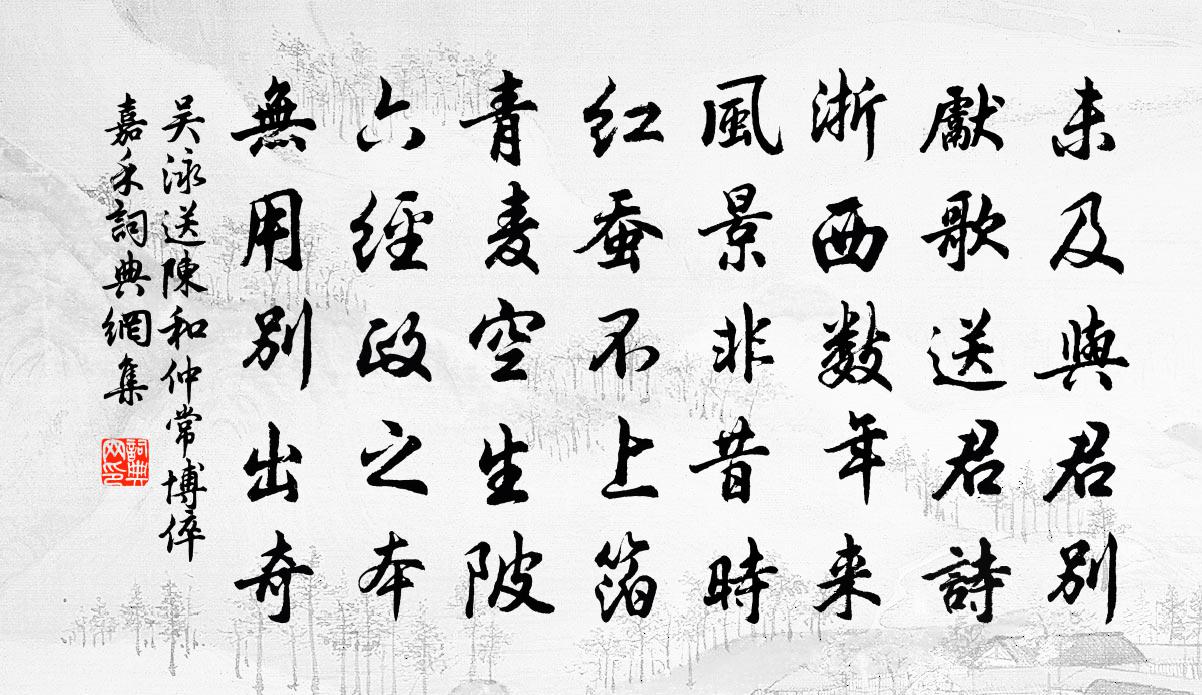 未及與君別
獻歌送君詩
浙西數年来
風景非昔時
紅蚕不上箔
青麦空生陂
六經政之本
無用別出奇
吴泳送陳和仲常博倅
嘉禾詞典網集
詞典網印